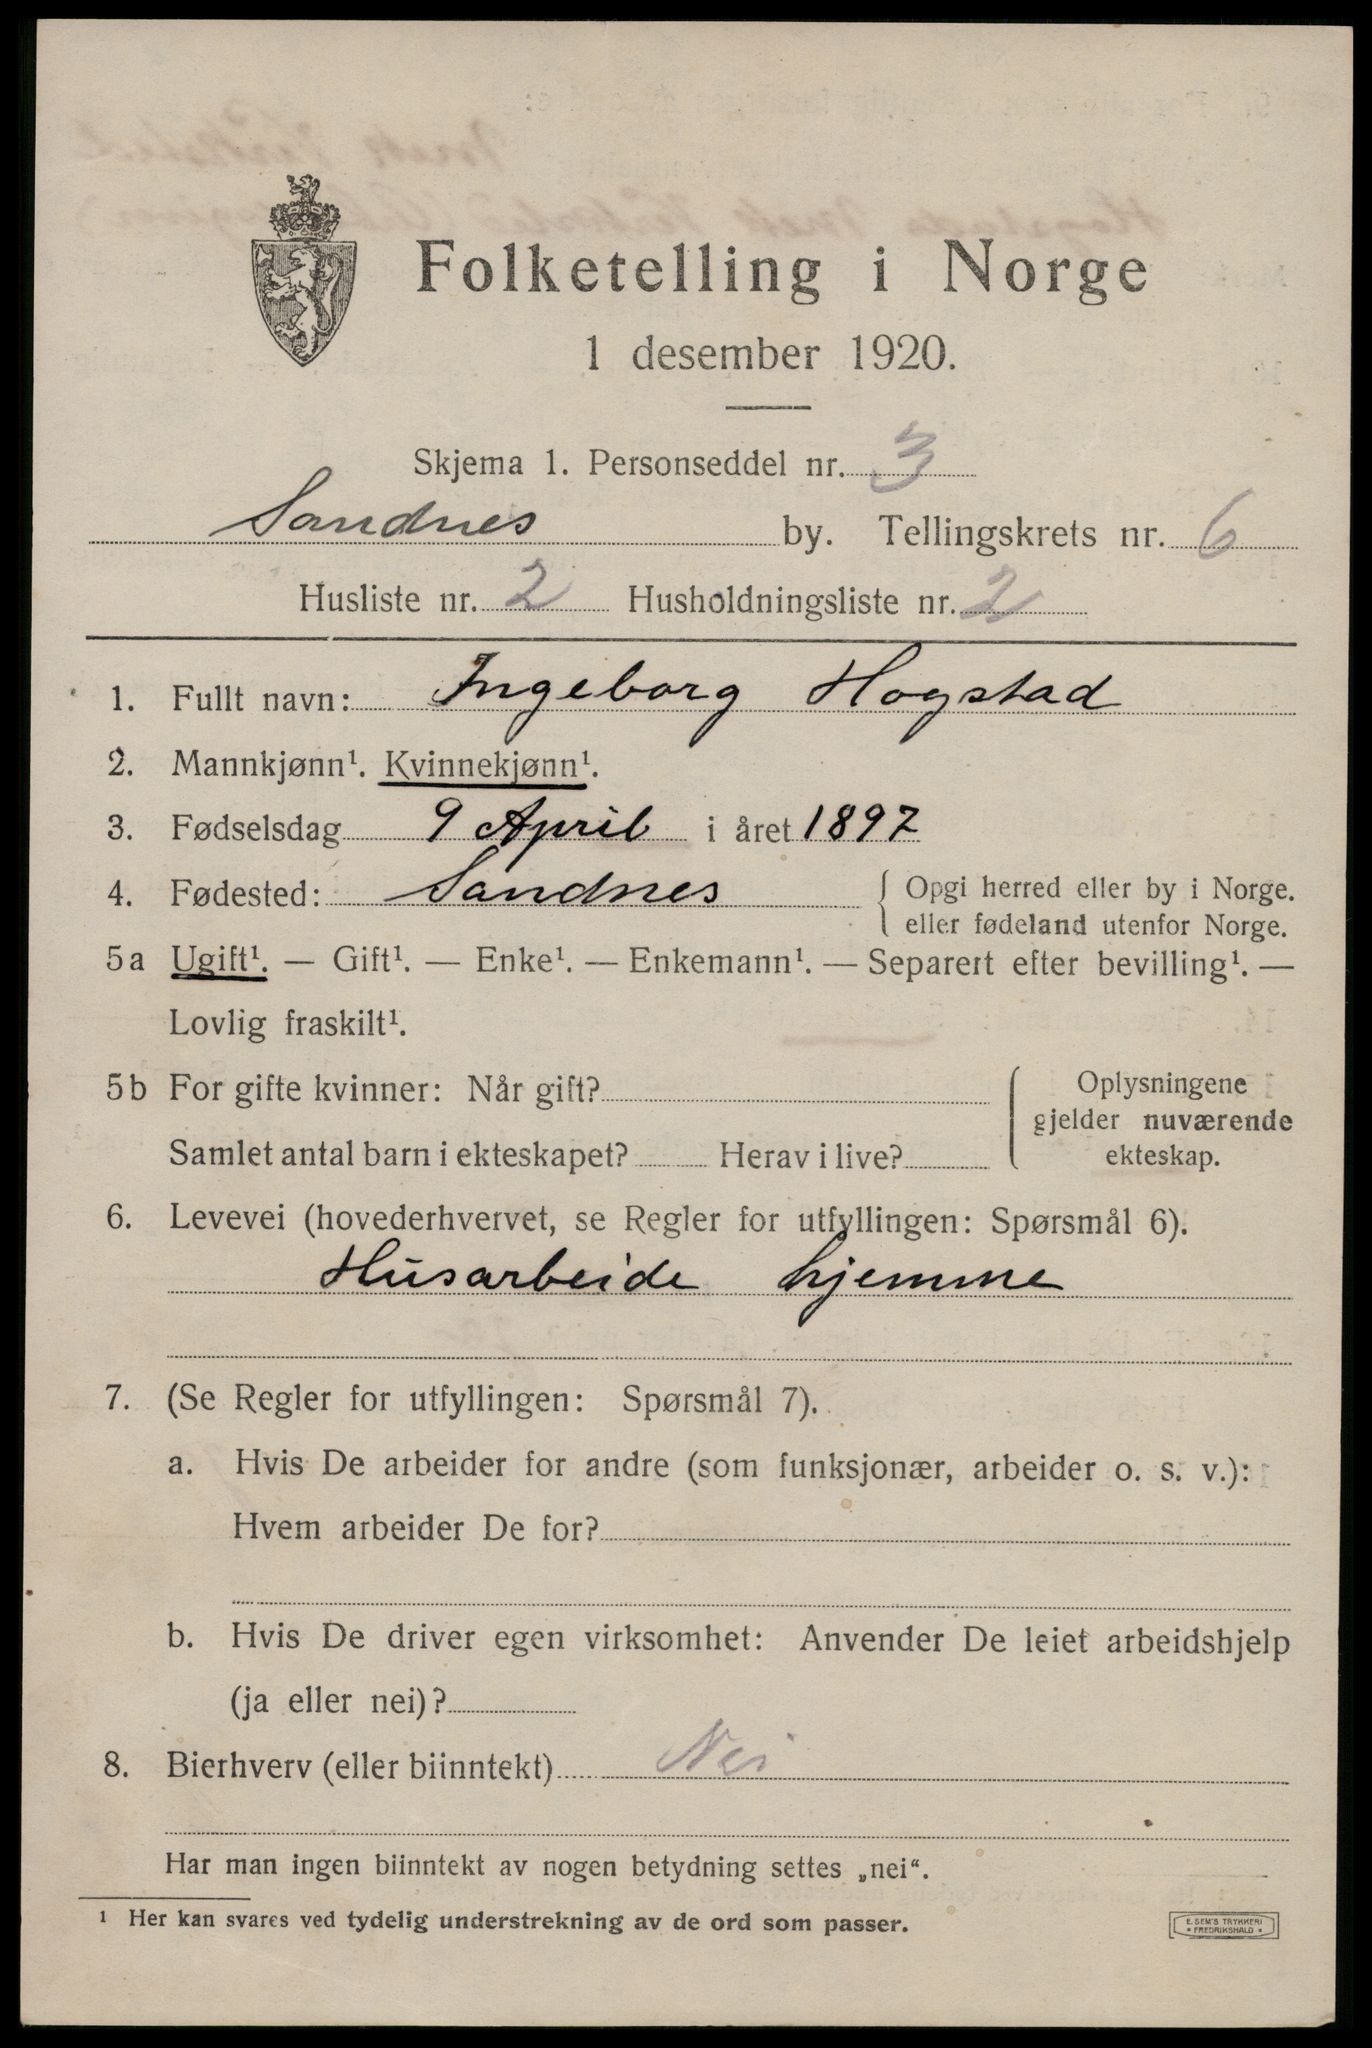 Folketelling i Norge
1 desember 1920.
Skjema 1. Personseddel nr. 3
Sandnes by. Tellingskrets nr. 6
Husliste nr. 2 Husholdningsliste nr. 2
1. Fullt navn: Ingeborg Hogstad
2. Mannkjønn¹. Kvinnekjønn¹.
3. Fødselsdag 9 April i året 1897
4. Fødested: Sandnes { Opgi herred eller by i Norge.
eller fødeland utenfor Norge.
5a Ugift¹. — Gift¹. — Enke¹. — Enkemann¹. — Separert efter bevilling¹. —
Lovlig fraskilt¹.
5b For gifte kvinner: Når gift?
Samlet antal barn i ekteskapet? Herav i live?
Oplysningene
gjelder nuværende
ekteskap.
6. Levevei (hovederhvervet, se Regler for utfyllingen: Spørsmål 6).
Husarbeide hjemme
7. (Se Regler for utfyllingen: Spørsmål 7).
a. Hvis De arbeider for andre (som funksjonær, arbeider o. s. v.):
Hvem arbeider De for?
b. Hvis De driver egen virksomhet: Anvender De leiet arbeidshjelp
(ja eller nei)?
8. Bierhverv (eller biinntekt) Nei
Har man ingen biinntekt av nogen betydning settes „nei“.
¹ Her kan svares ved tydelig understrekning av de ord som passer.
E. SEM'S TRYKKERI
* FREDRIKSHALD *